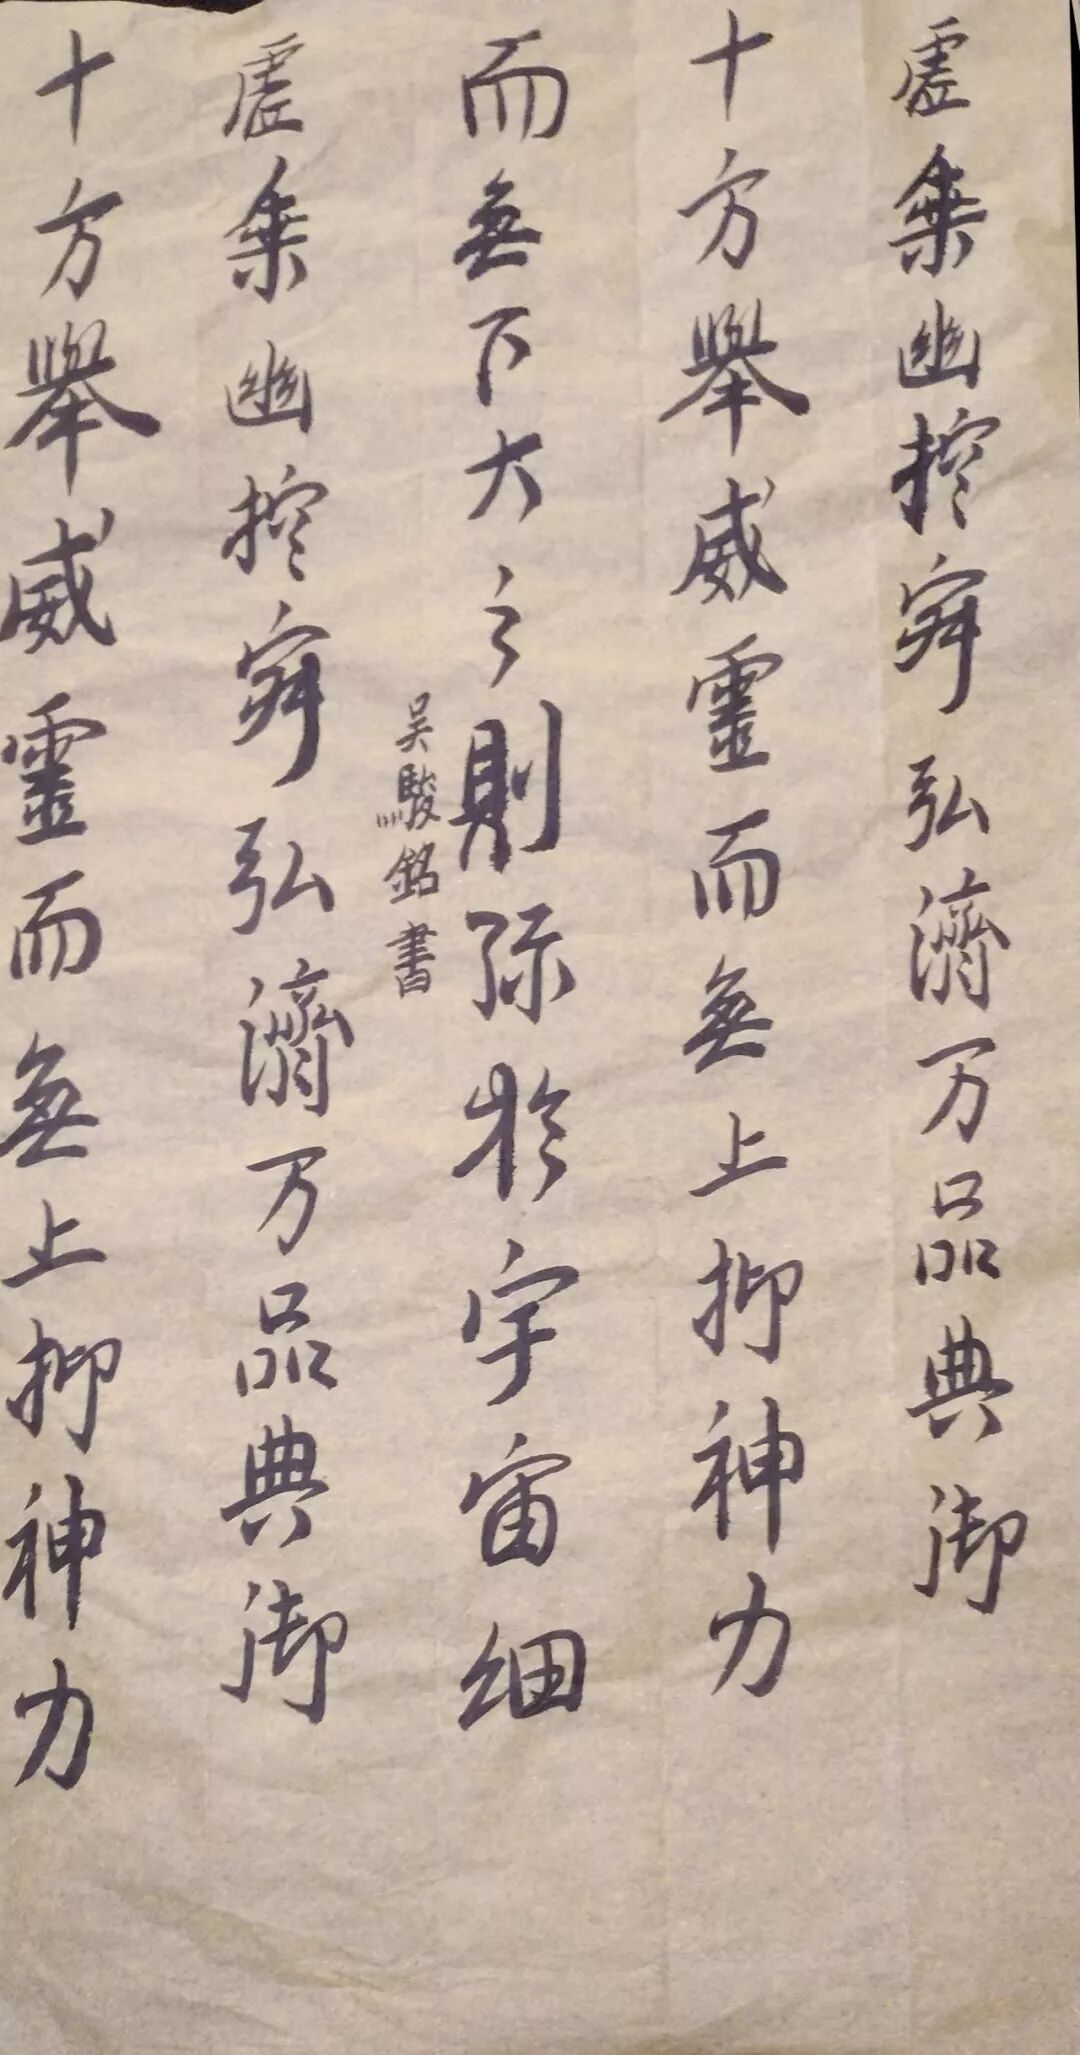 虛乗幽控寂弘濟万品典御
十方舉威靈而無上抑神力
而無下大之則弥於宇宙細
吴駿銘書
虛乗幽控寂弘濟万品典御
十方舉威靈而無上抑神力